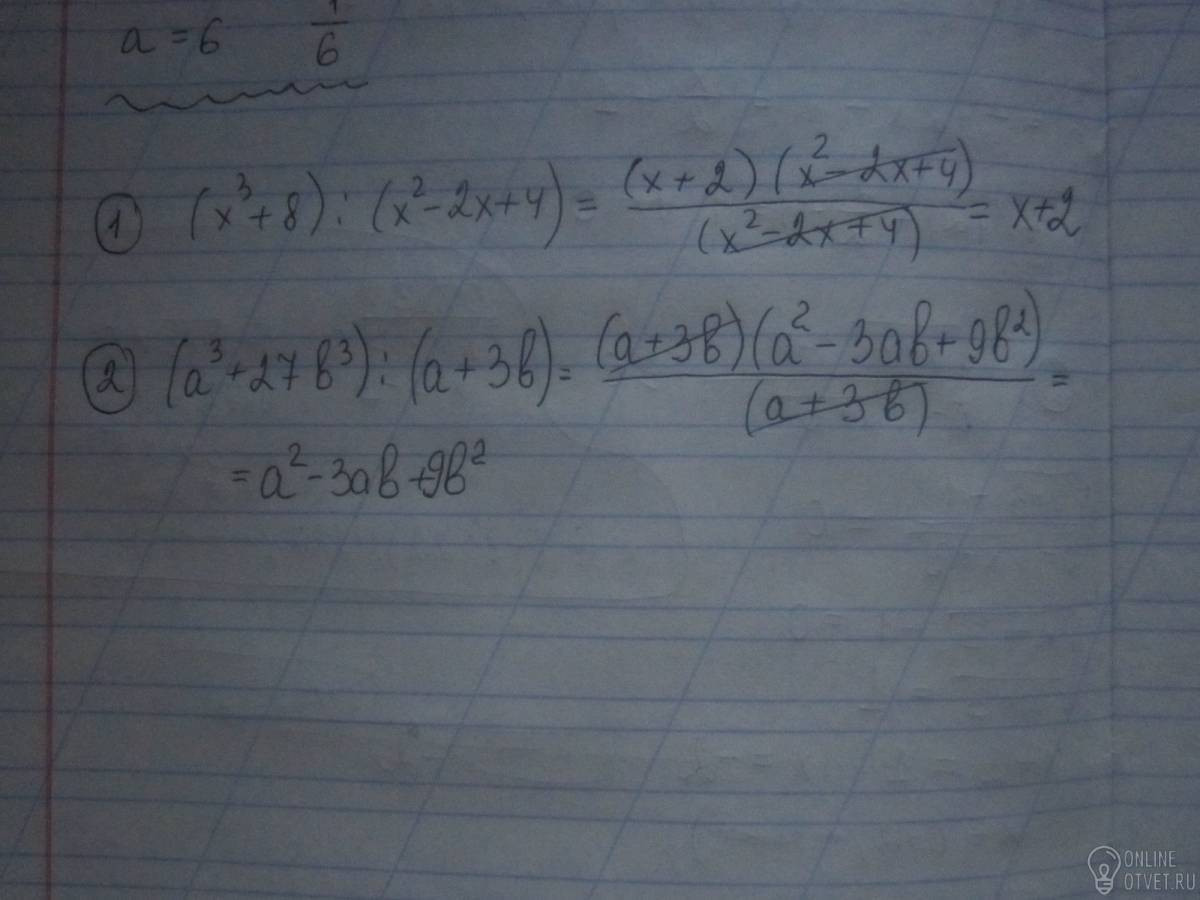 a = 6 1/6
① (x³+8):(x²-2x+4)= (x+2)(x²-2x+4)/(x²-2x+4) = x+2
② (a³+27в³):(a+3в)= (a+3в)(a²-3aв+9в²)/(a+3в) =
= a²-3aв+9в²
ONLINE
OTVET.RU